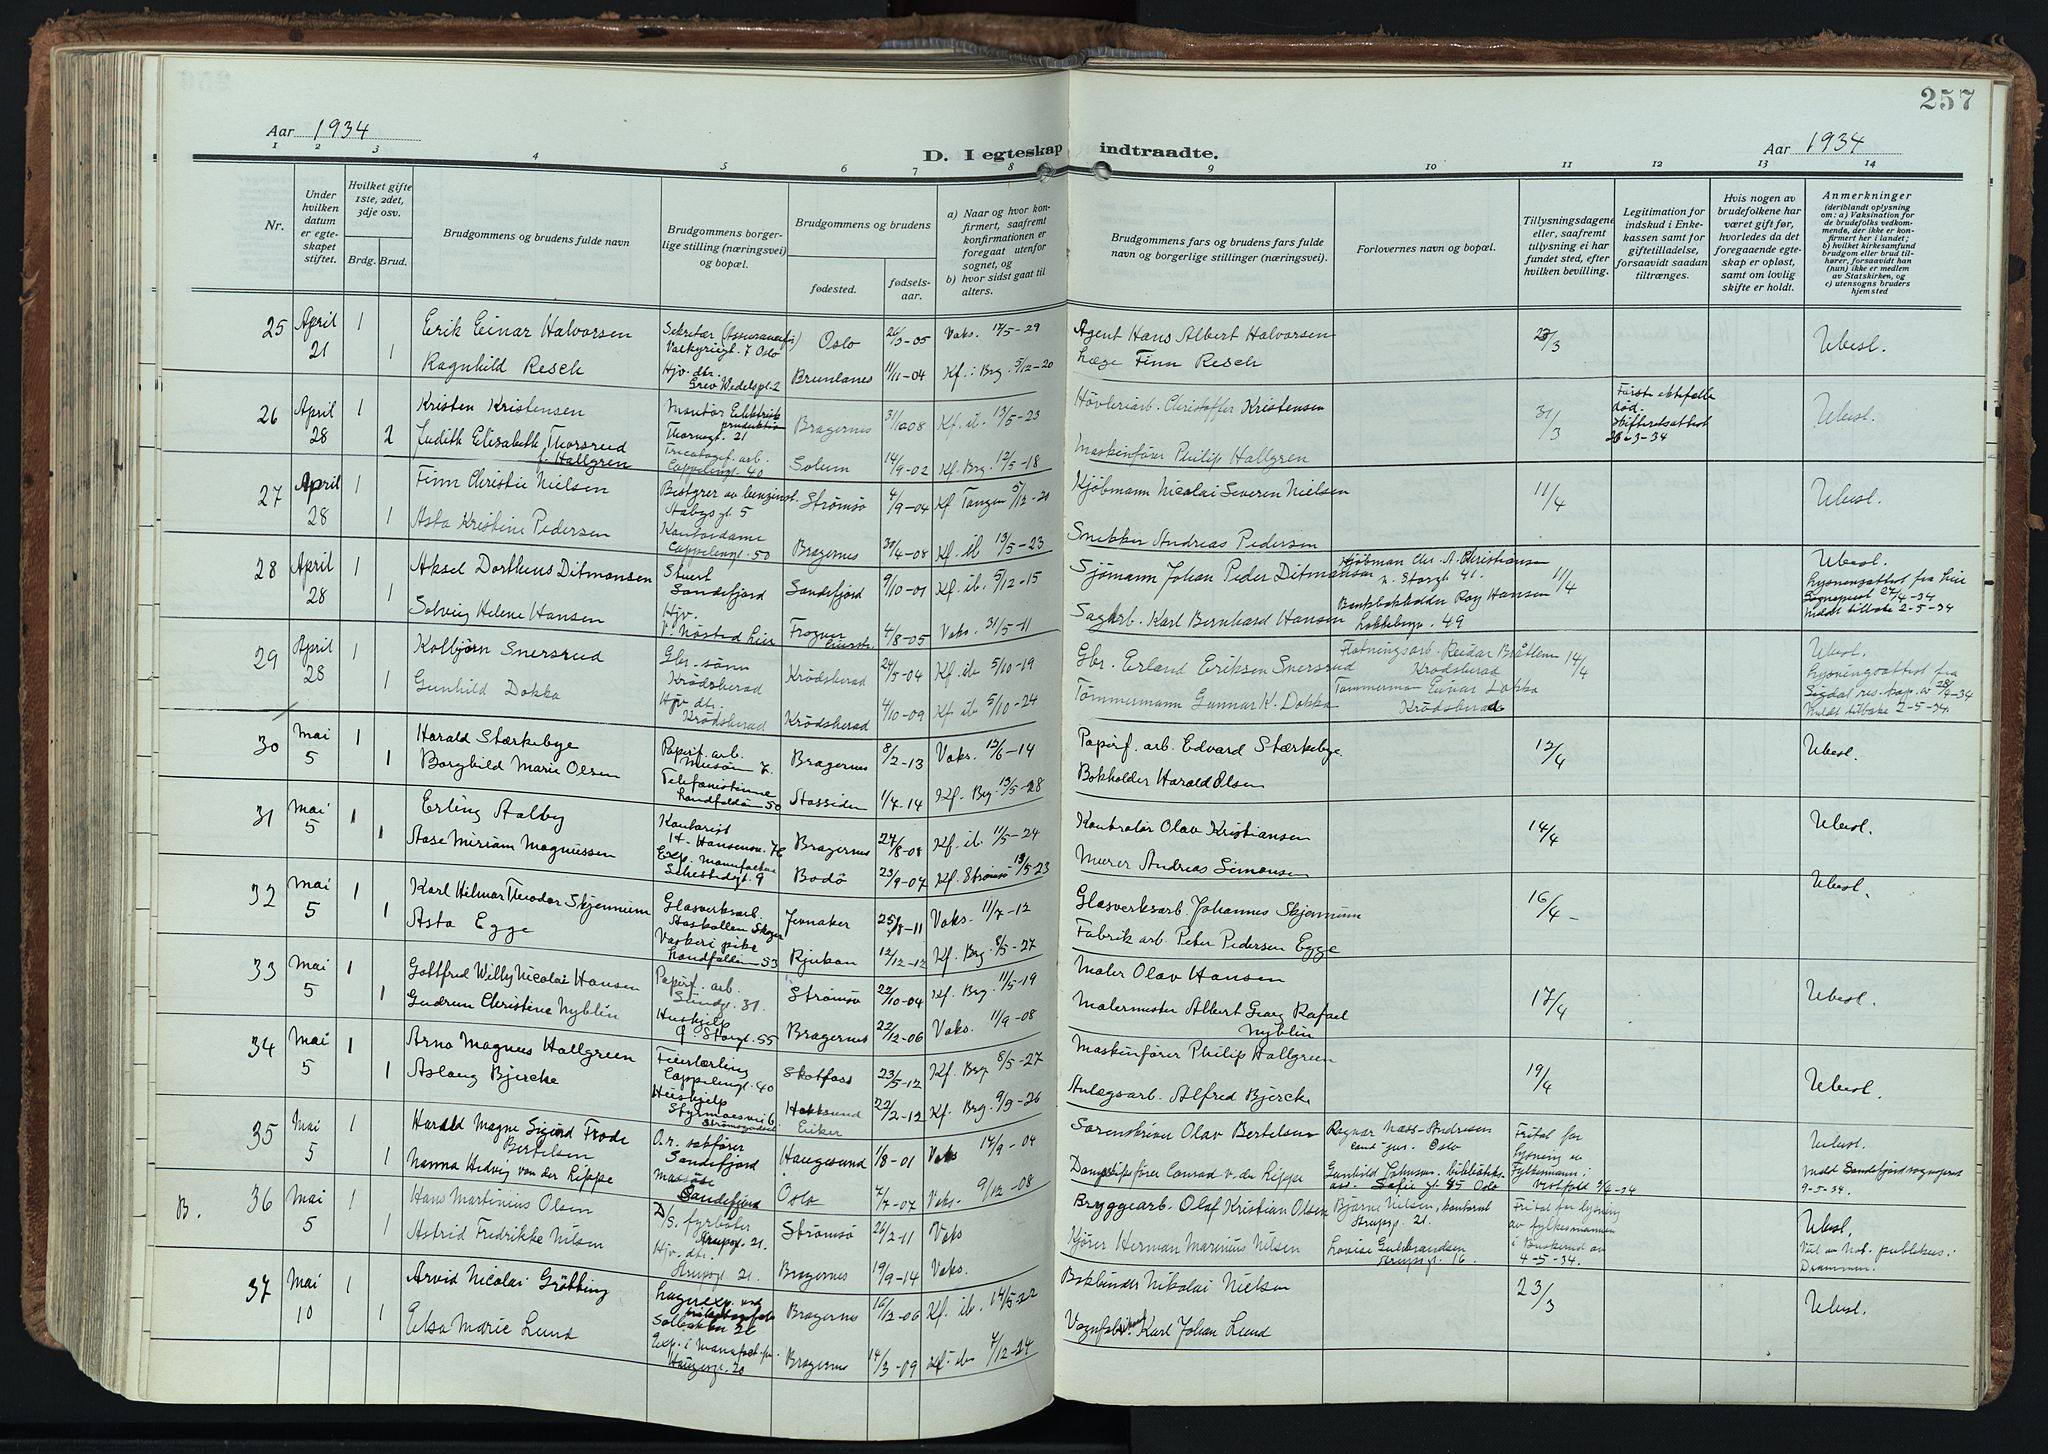 257
Aar 1934
D. I egteskap indtraadte.
Aar 1934
1 2 3 4 5 6 7 8 9 10 11 12 13 14
Nr.
Under hvilken datum er egteskapet stiftet.
Hvilket gifte 1ste, 2det, 3dje osv.
Brdg. Brud.
Brudgommens og brudens fulde navn
Brudgommens borgerlige stilling (næringsvei) og bopæl.
Brudgommens og brudens
fødested.
fødselsaar.
a) Naar og hvor konfirmert, saafremt konfirmationen er foregaat utenfor sognet, og
b) hvor sidst gaat til alters.
Brudgommens fars og brudens fars fulde navn og borgerlige stillinger (næringsvei).
Forlovernes navn og bopæl.
Tillysningsdagene eller, saafremt tillysning ei har fundet sted, efter hvilken bevilling.
Legitimation for indskud i Enkekassen samt for giftetilladelse, forsaavidt saadan tiltrænges.
Hvis nogen av brudefolkene har været gift før, hvorledes da det foregaaende egteskap er opløst, samt om lovlig skifte er holdt.
Anmerkninger
(deriblandt oplysning om: a) Vaksination for de brudefolks vedkommende, der ikke er konfirmert her i landet; b) hvilket kirkesamfund brudgom eller brud tilhører, forsaavidt han (hun) ikke er medlem av Statskirken, og c) utensogns bruders hjemsted
25 April 21 1 Erik Einar Halvorsen Sekretær Valkyriegt. 7 Oslo Oslo 26/3-05 Vaks. 17/5-29 Agent Hans Albert Halvorsen 23/3 Ubesl.
1 Ragnhild Resch Hjv. dtr. Grev Wedelspl. 2 Brunlanes 11/11-04 Kf. i Brg. 5/12-20 Læge Finn Resch
26 April 28 1 Kristen Kristensen Montør Thornegt. 21 Bragernes 31/10-08 Kf. ib. 13/5-23 Høvleriarb. Christoffer Kristensen 31/3 Første ektefelle død. Skifteretsattest 23-3-34 Ubesl.
2 Judith Elisabeth Thorsrud f. Hallgren Tricotagef. arb. Cappelensgt. 40 Solum 14/9-02 Kf. Brg. 12/5-18 Maskinfører Philip Hallgren
27 April 28 1 Finn Christie Nielsen Bestyrer av benzinst. Strømsø 4/9-04 Kf Tangen 5/12-20 Kjøbmann Nicolai Severin Nielsen 11/4 Ubesl.
1 Asta Kristine Pedersen Kontordame Cappelengt. 50 Bragernes 30/4-08 Kf. ib 13/5-23 Snekker Andreas Pedersen
28 April 28 1 Aksel Dortheus Ditmansen Stuert Sandefjord Sandefjord 9/10-01 Kf. ib. 5/12-15 Sjømann Johan Peder Ditmansen Kjøbman Chr. A. Christiansen n. Storgt. 41. 11/4 Ubesl. Lysningsattest fra Lier Sogneprest 27/4-34 Meldt tilbake 2-5-34
1 Solveig Helene Hansen Hjv. V. Nøsted Lier Frogner Lier 4/8-05 Vaks. 31/5-11 Sagarb. Karl Bernhard Hansen Bankbokholder Roy Hansen Løkkebergt. 49
29 April 28 1 Kolbjørn Snersrud Gbr. sønn Krødsherad Krødsherad 24/5-04 Kf. ib 5/10-19 Gbr. Erland Eriksen Snersrud Fløtningsarb. Reidar Bråtlem Krødsherad 14/4 Ubesl. Lysningsattest fra Sigdal res. kap. av 28/4-34 Meldt tilbake 2-5-34.
1 Gunhild Dokka Hjv. dtr. Krødsherad Krødsherad 4/10-09 Kf ib 5/10-24 Tømmermann Gunnar K. Dokka Tømmerman Einar Dokka Krødsherad
30 Mai 5 1 Harald Stærkebye Papirf. arb. Bragernes 8/2-13 Vaks. 13/6-14 Papirf. arb. Edvard Stærkebye 12/4 Ubesl.
1 Borghild Marie Olsen Telefonistinne Landfalløen 50 1/4-14 Kf. Brg. 13/5-28 Bokholder Harald Olsen
31 Mai 5 1 Erling Aalby Kontorist Bragernes 27/8-08 Kf. ib 11/5-24 Kontrolør Olav Kristiansen 14/4 Ubesl.
1 Aase Miriam Magnussen Exp. manufaktur Schestedsgt. 9 Bodø 23/9-07 Kf. Strømsø 13/5-23 Murer Andreas Simonsen
32 Mai 5 1 Karl Hilmar Theodor Skjennum Glasverksarb. Aaskollen Skoger Jevnaker 25/8-11 Vaks. 11/7-12 Glasverksarb. Johannes Skjennum 16/4 - Ubesl.
1 Asta Egge Vaskeripike Landfalløen 53 Rjukan 12/12-12 Kf. Brg. 8/5-27 Fabrik arb. Peter Pedersen Egge
33 Mai 5 1 Gottfred Willy Nicolai Hansen Papirf. arb. Sundgt. 31. Strømsø 22/10-04 Kf. Brg. 11/5-19 Maler Olav Hansen 17/4 Ubesl.
1 Gudrun Christine Nyblin Hushjelp Ø. Storgt. 55 Bragernes 22/12-06 Vaks. 11/9-08 Malermester Albert Georg Rafael Nyblin
34 Mai 5 1 Arno Magnus Hallgreen Feierlærling Cappelengt. 40 Skotfoss 23/5-12 Kf. Brg. 8/5-27 Maskinfører Philip Hallgreen 19/4 Ubesl.
1 Aslaug Bjercke Hushjelp Styrmoesvei 6 Hokksund Eiker 22/2-12 Kf. Brg. 9/9-26 Anlægsarb. Alfred Bjercke
35 Mai 5 1 Harald Magne Sigurd Frode Bertelsen O.r. sakfører Sandefjord Haugesund 1/8-01 Vaks 17/9-04 Sorenskriver Olav Bertelsen Ragnar Næss-Andresen cand. jur. Oslo Frital for lysning av Fylkesmann i Vestfold 4-34 Ubesl. Meldt Sandefjord sogneprest 9-5-34.
1 Nanna Hedvig von der Rippe Massøse Sandefjord Oslo 7/7-07 Vaks. 9/12-08 Dampskipsfører Conrad v. der Rippe Gunhild Johnsen, biblioteksass. Sofie gt. 85 Oslo
B. 36 Mai 5 1 Hans Martinius Olsen D/S. fyrbøter Strupsgt. 21. Strømsø 26/2-11 Vaks Bryggearb. Olaf Kristian Olsen Bjarne Nielsen, kontorist Strupsgt. 21. Frital for lysning av fylkesmannen i Buskerud av 4-5-34. Ubesl. Viet av Not. publikus i Drammen.
1 Astrid Fredrikke Nilsen Hjv. dtr. Strupsgt. 21. Bragernes 19/9-14 Vaks. Kjører Herman Marinius Nilsen Lovise Gulbrandsen Strupsgt. 16.
37 Mai 10 1 Arvid Nicolai Grøtting Lagerexp. ved Bragernes 16/12-06 Kf. ib. 14/5-22 Bokbinder Nikolai Nielsen 23/3 Ubesl.
1 Elsa Marie Lund Exp. i Manufact. Haugesgt. 20 Bragernes 14/3-09 Kf. ib. 7/12-24 Karl Johan Lund